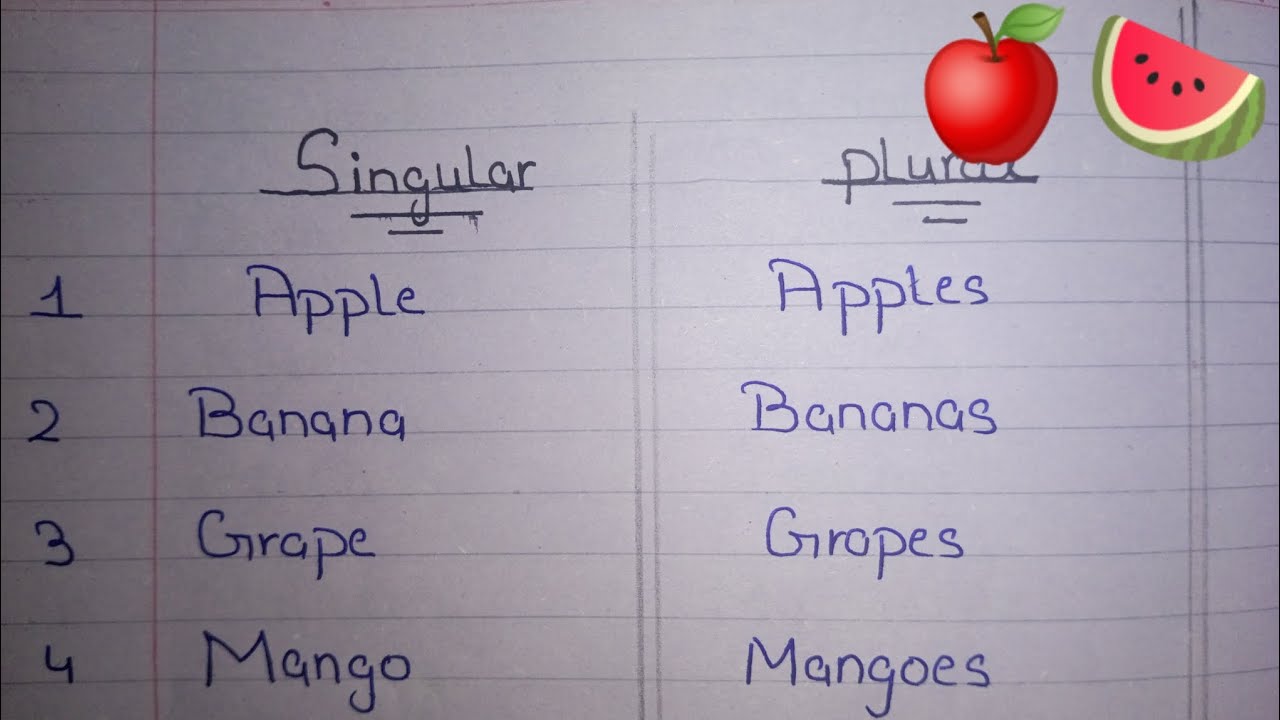 Singular plural
1 Apple Apples
2 Banana Bananas
3 Grape Grapes
4 Mango Mangoes